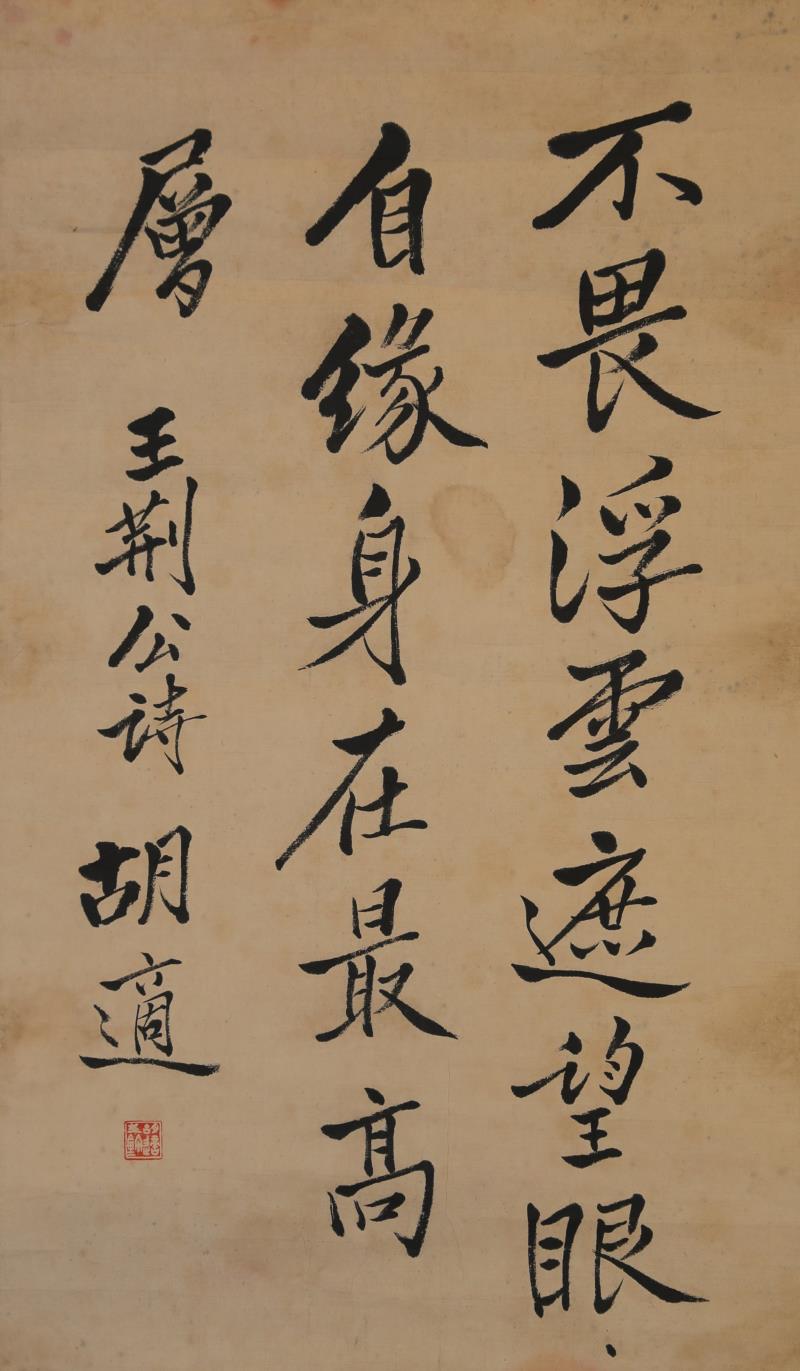 不畏浮雲遮望眼、
自緣身在最高
層 王荆公詩 胡適